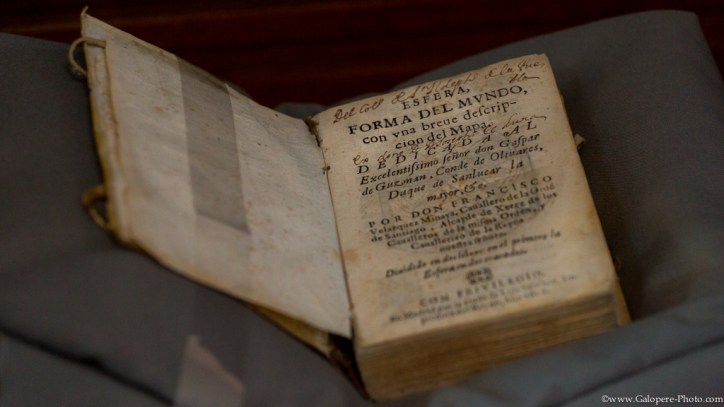 Del Coll. de
ESFERA,
FORMA DEL MVNDO,
con vna breue descrip-
cion del Mapa.
DEDICADA AL
Excelentissimo señor don Gaspar
de Guzman, Conde de Oliuares,
Duque de Sanlucar la
mayor, &c.
POR DON FRANCISCO
Velazquez Minaya, Cauallero de la Orden
de Santiago, Alcayde de
Caualleros de la misma Orden, y
Cauallerizo de la Reyna
nuestra señora.
Diuidido en dos libros: en el primero la
Esfera
CON PRIVILEGIO.
En Madrid por la viuda de
©www.Galopere-Photo.com